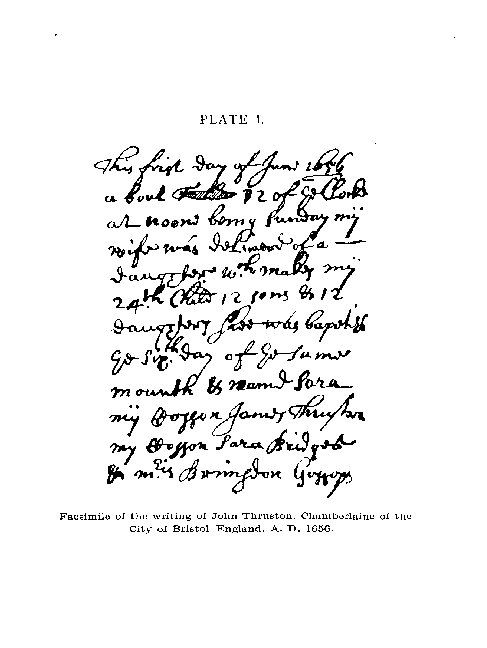 PLATE 1.
This first day of June 1656
about 12 of ye Clock
at noone being Sunday my
wife was delivered of a —
daughter wch makes my
24th Child 12 sons & 12
daughters shee was bapt
ye six th day of ye same
mounth & named Sara
my Cosson James Thruston
my Cosson Sara Bridges
& mris Brimsdon Gossops
Facsimile of the writing of John Thruston, Chamberlaine of the
City of Bristol England. A. D. 1656.